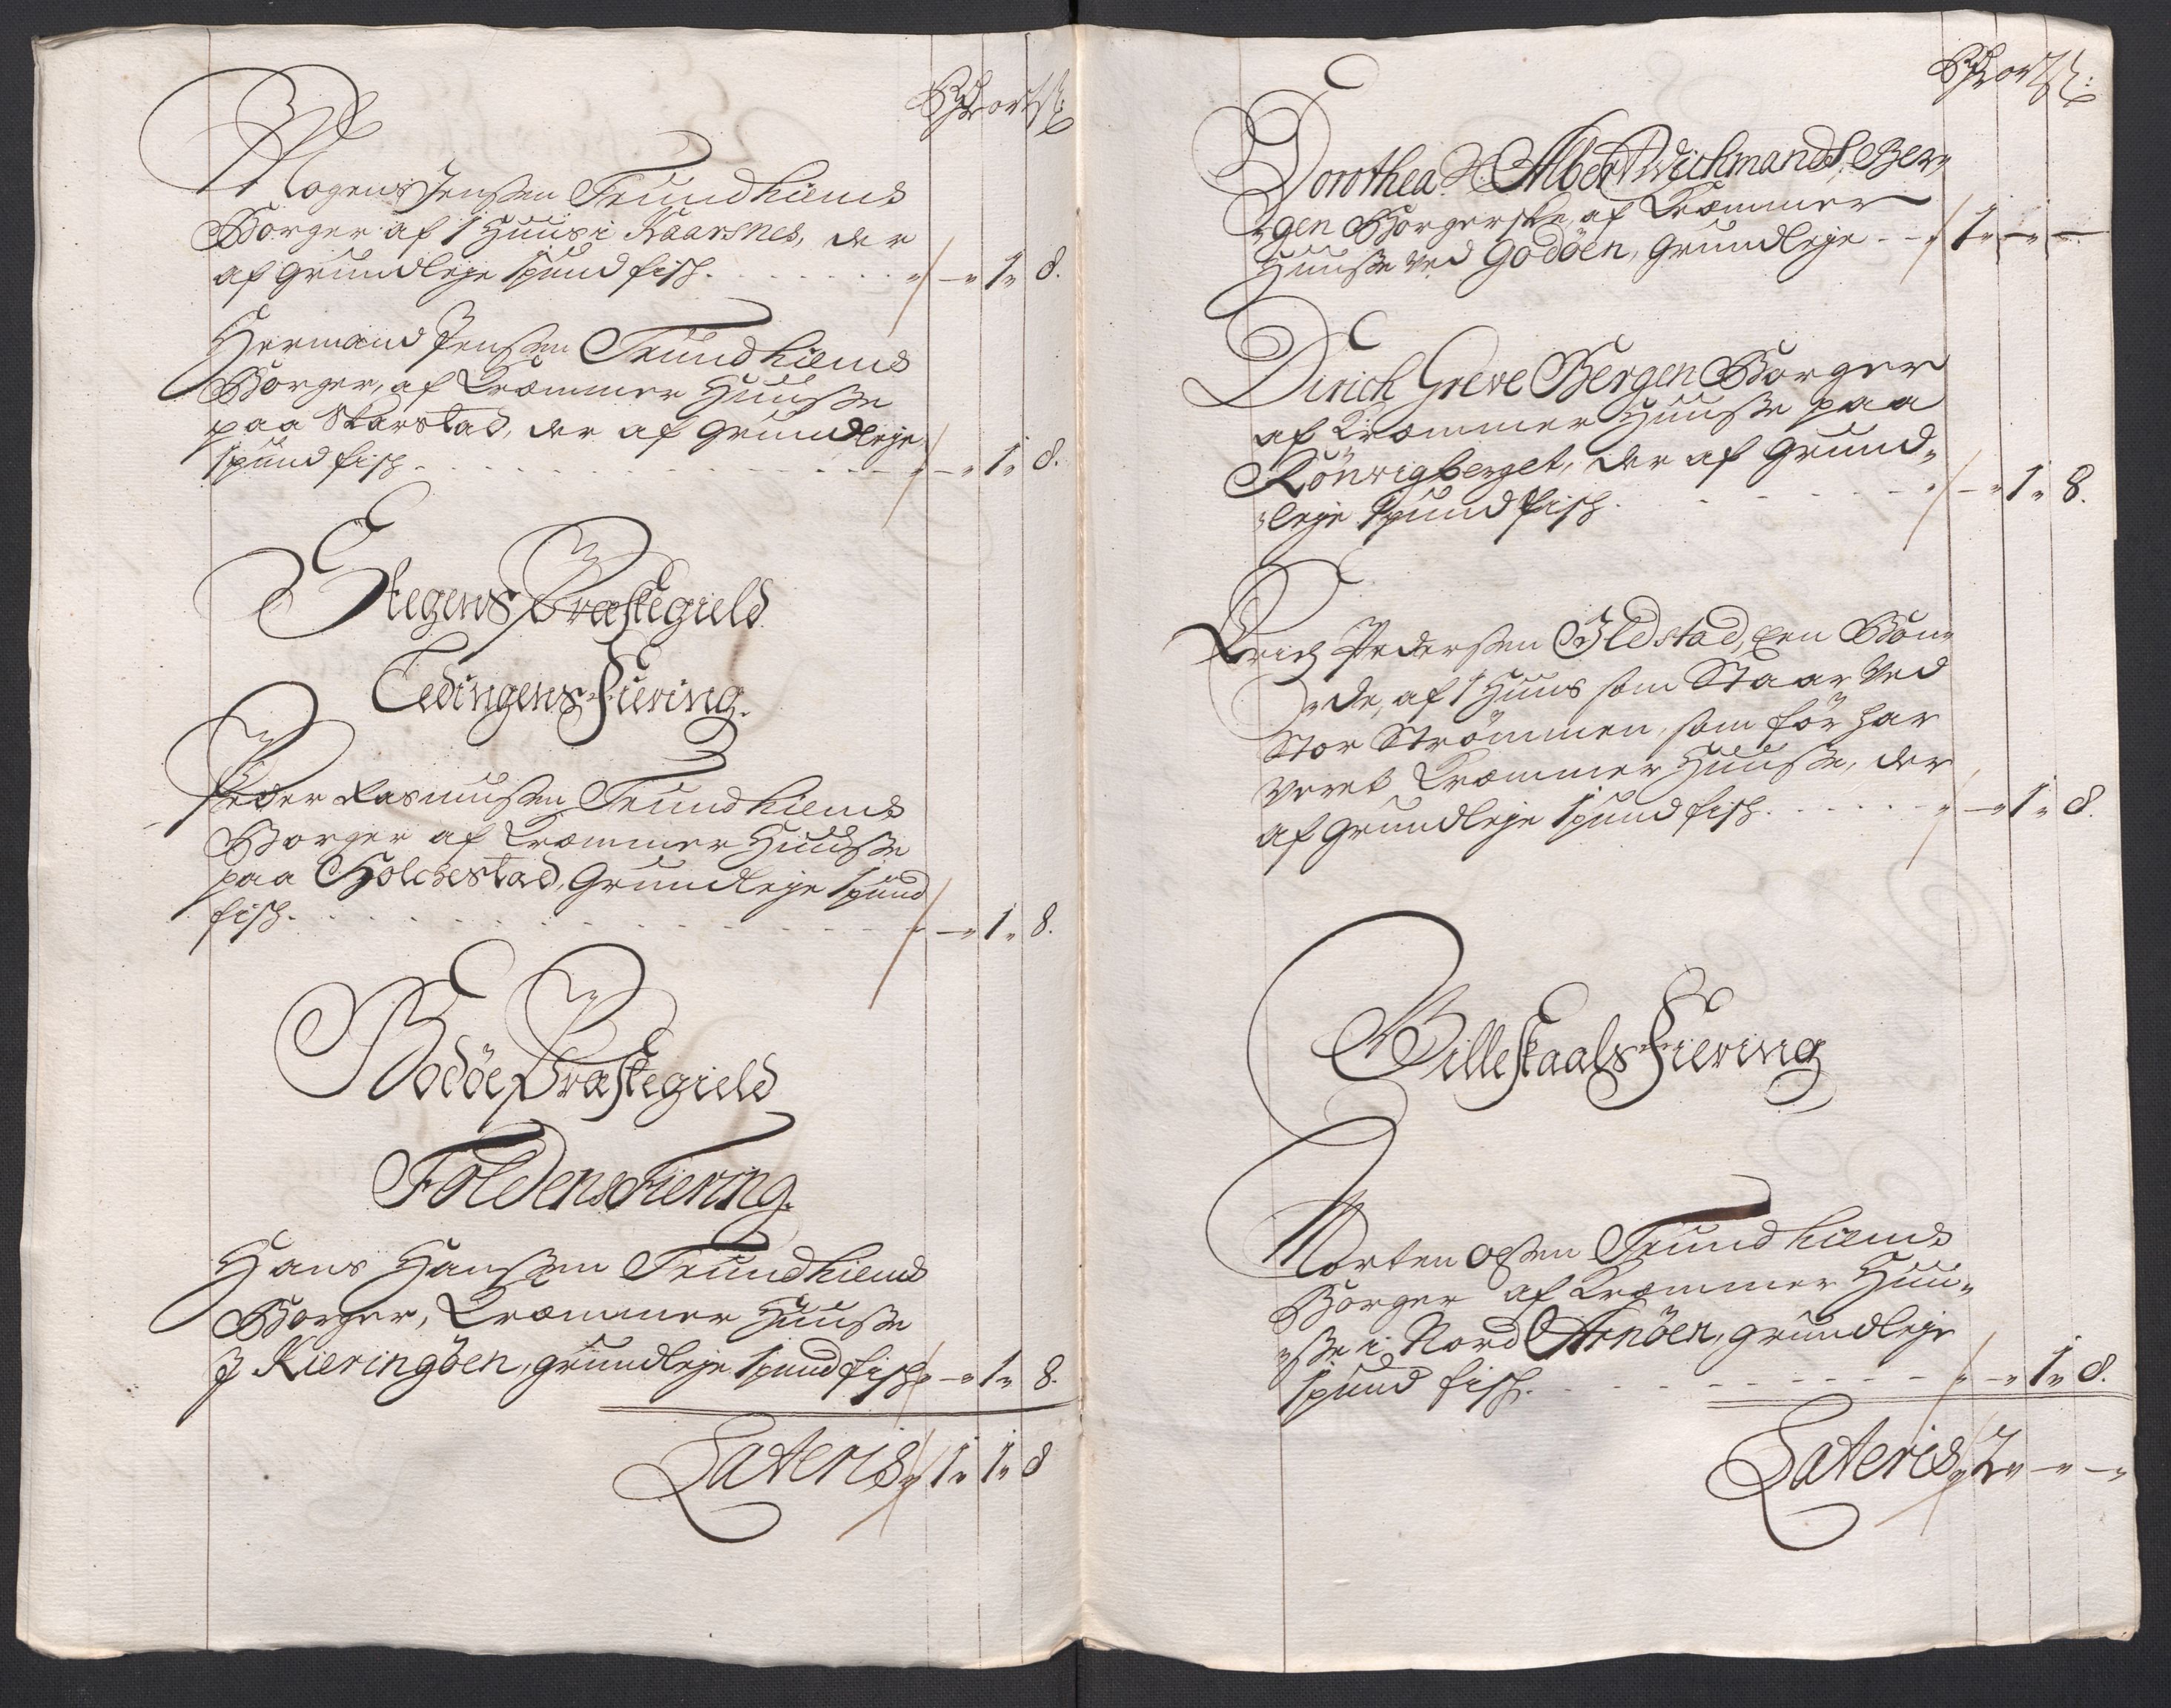 Rdr ort ß:
Mogens Jenßen Trundhiems
Borger af 1 Huus i Kaarsnes, der
af grundleje 1 pund fisch . . . . . . . " — " 1 " 8.
Hermand Jenßen Trundhiems
Borger, af Kræmmer Huuße
paa Skarstad, der af grundleje
1 pund fisch . . . . . . . " — " 1 " 8.
Stegens Præstegield
Ledingens Fiering.
Peder Rasmußen Trundhiems
Borger af Kræmmer Huuße
paa Holchestad, Grundleje 1 pund
fisch . . . . . . . " — " 1 " 8.
Bodöe Præstegield
Foldens Fiering.
Hans Hanßen Trundhiems
Borger, Kræmmer Huuße
J Kieringöen, grundleje 1 pund fisch " — " 1 " 8.
Lateris " 1 " 1 " 8
Rdr ort ß:
Dorothea Sl Albert Wichmands, Ber„
„gen Borgerske, af Kræmmer
Huuße ved Godöen, grundleje . - " 1 " — " —
Dirich Greve Bergen Borger
af Kræmmer Huuße paa
Könrigberget, der af Grund„
„leje 1 pund fisch . . . . . . . " — " 1 " 8.
Erich Pederßen Ildstad, een Bon„
„de, af 1 Huus som Staar Ved
Stor Strömmen, som för har
veret Kræmmer Huuße, der
af grundleje 1 pund fisch . . . . . " — " 1 " 8.
Gilleskaals Fiering
Morten Olßen Trundhiems
Borger af Kræmmer Huu„
„ße i Nord Arnöen, grundleje
1 pund fisch . . . . . . . " — " 1 " 8.
Lateris " 2 " — " — "